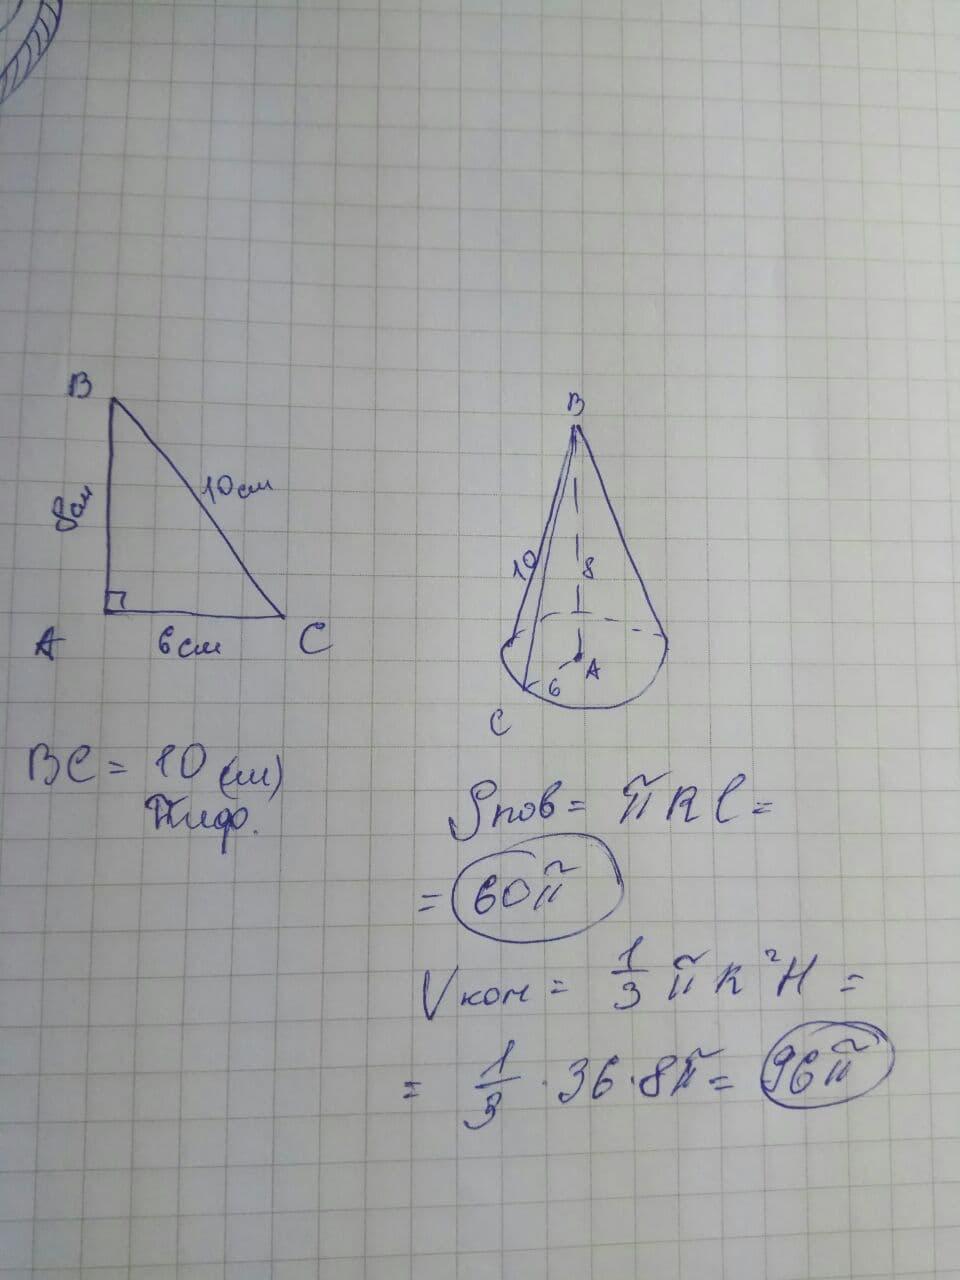 B
10см
8см
A
6см
C
BC = 10 (см)
Пифо.
B
10
8
A
6
C
Sпов = π R l =
= 60π
Vкон = 1/3 π R²H =
= 1/3 · 36 · 8π = 96π